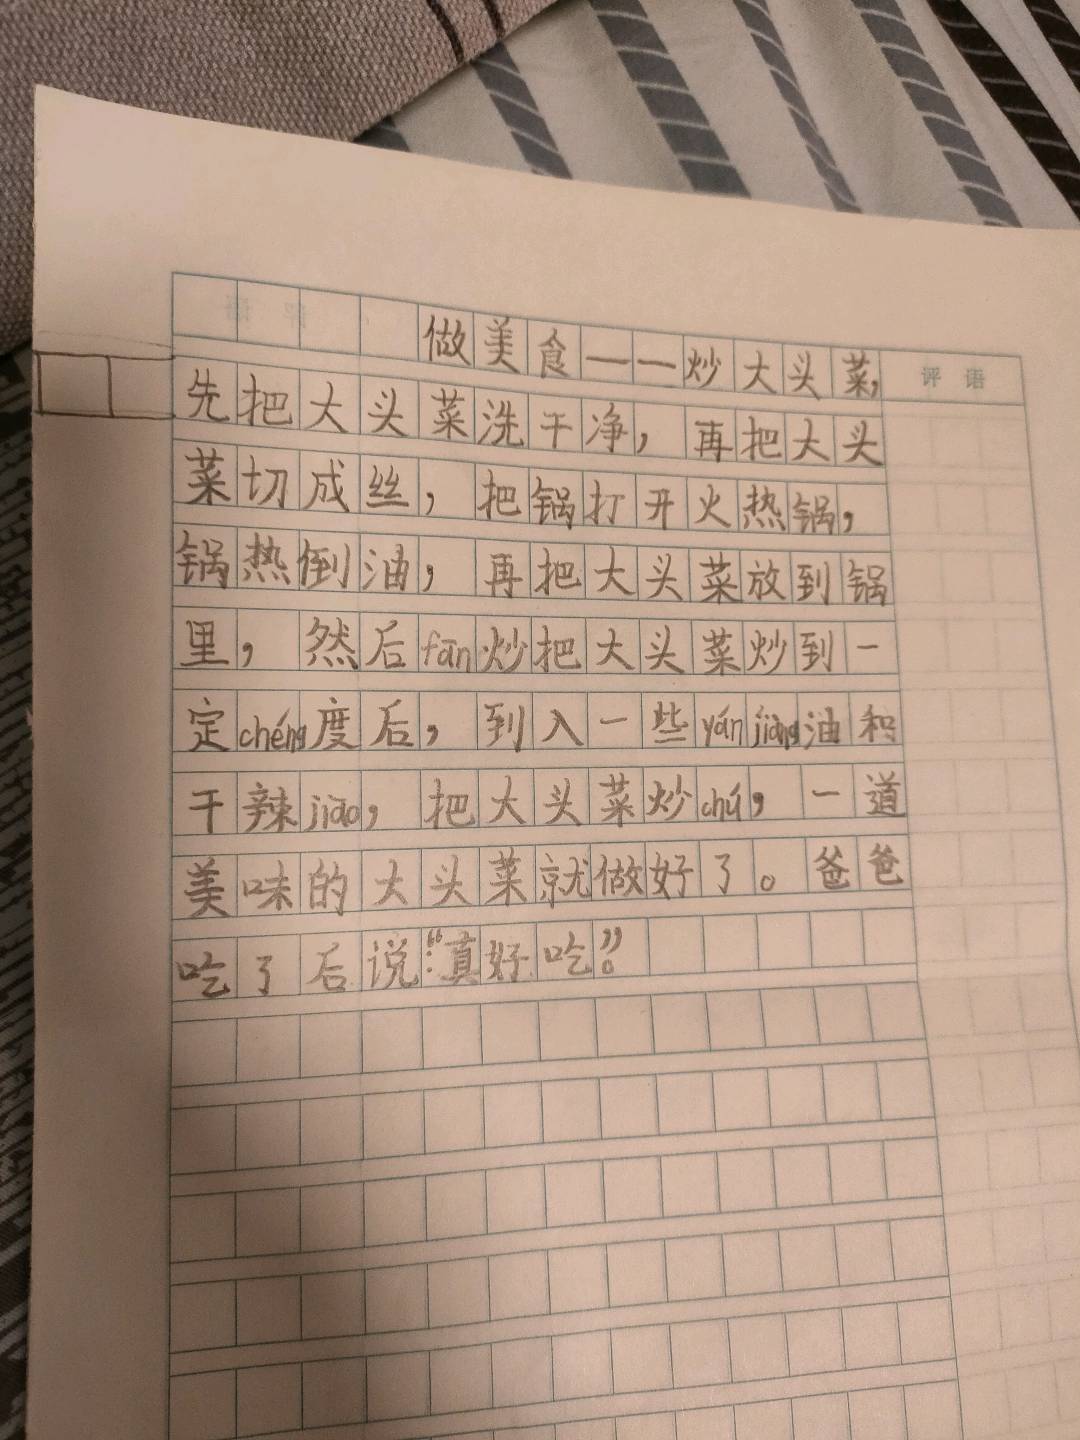 做美食——炒大头菜,
评语
先把大头菜洗干净，再把大头
菜切成丝，把锅打开火热锅，
锅热倒油，再把大头菜放到锅
里，然后fān炒把大头菜炒到一
定chéng度后，到入一些yán jiàng油和
干辣jiāo，把大头菜炒chú，一道
美味的大头菜就做好了。爸爸
吃了后说:“真好吃”。